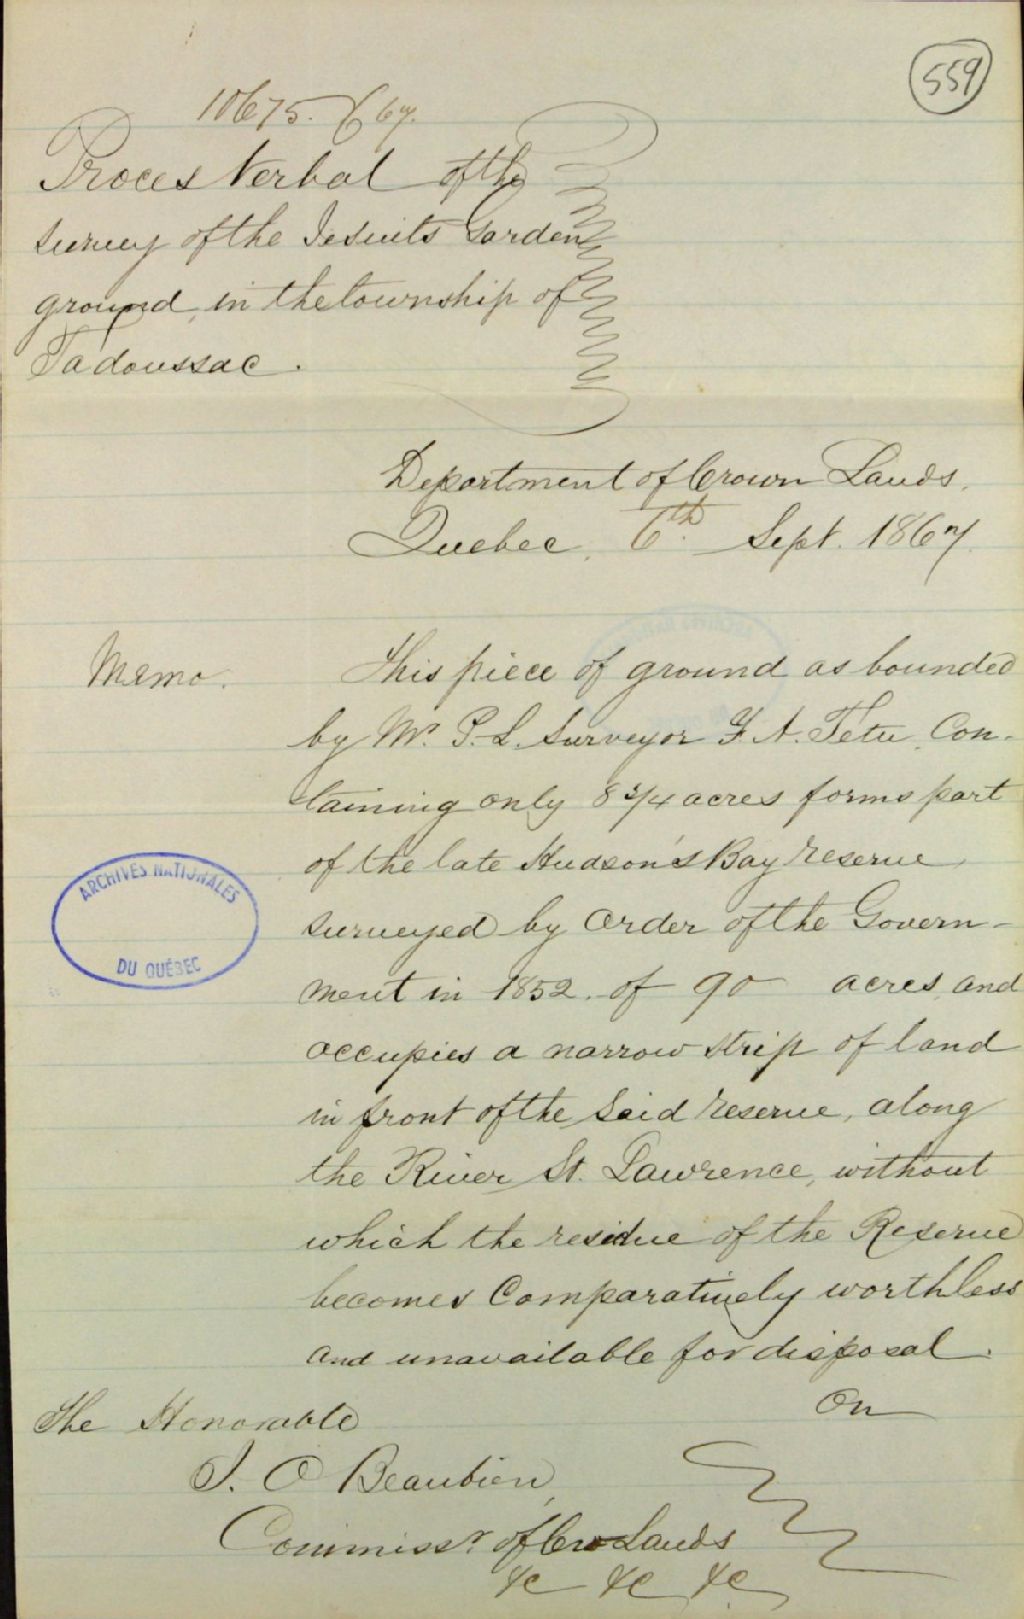 559
10675. 67.
Proces Verbal of the
survey of the Jesuits Garden
ground, in the township of
Tadoussac.
Department of Crown Lands.
Quebec, 6th Sept. 1867.
Memo.
This piece of ground as bounded
by Mr. P. L. Surveyor F. A. Tetu, Con-
taining only 8 3/4 acres forms part
of the late Hudson's Bay reserve
surveyed by order of the Govern-
ment in 1852. of 90 acres, and
occupies a narrow strip of land
in front of the said reserve, along
the River St. Lawrence, without
which the residue of the Reserve
becomes Comparatively worthless
and unavailable for disposal.
On
The Honorable
J. O Beaubien,
Commissr. of Cro Lands
&c &c &c.
ARCHIVES NATIONALES
DU QUÉBEC